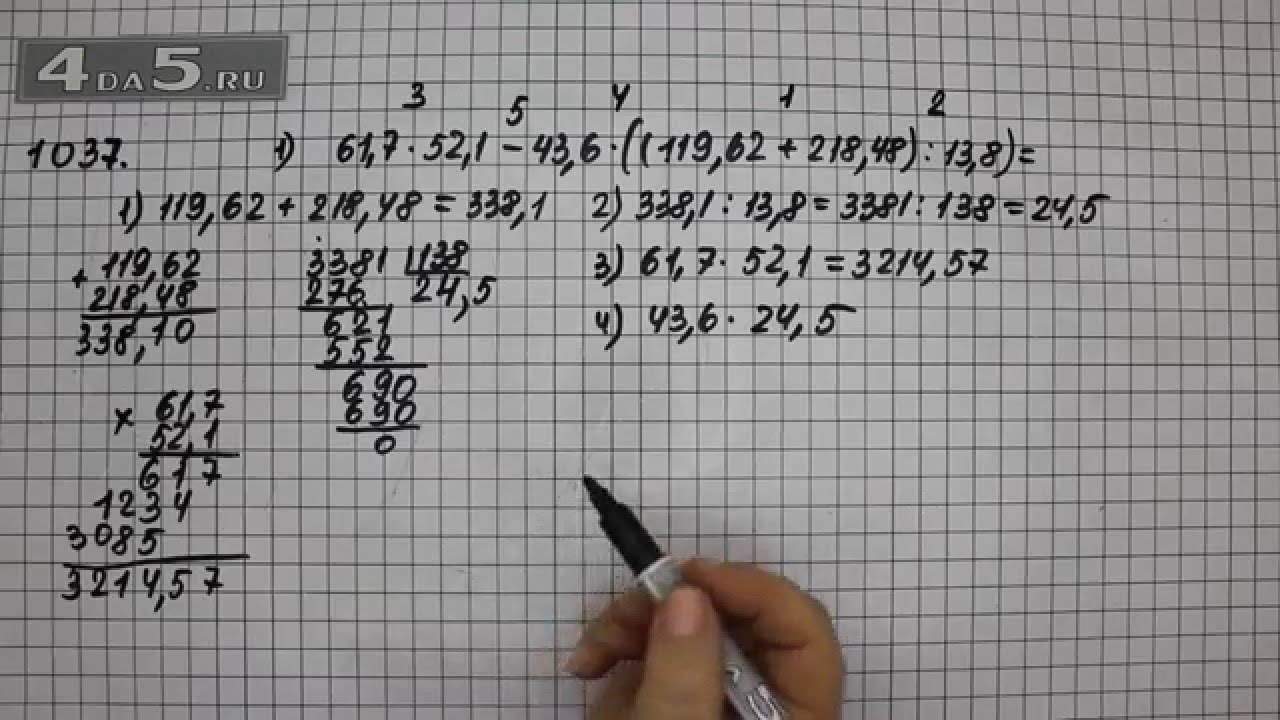 4DA5.RU
3 5 4 1 2
1037. 1) 61,7 · 52,1 − 43,6 · ((119,62 + 218,48) : 13,8) =
1) 119,62 + 218,48 = 338,1 2) 338,1 : 13,8 = 3381 : 138 = 24,5
3) 61,7 · 52,1 = 3214,57
4) 43,6 · 24,5
+ 119,62
218,48
338,10
3381 138
276 24,5
621
552
690
690
0
× 61,7
52,1
617
1234
3085
3214,57